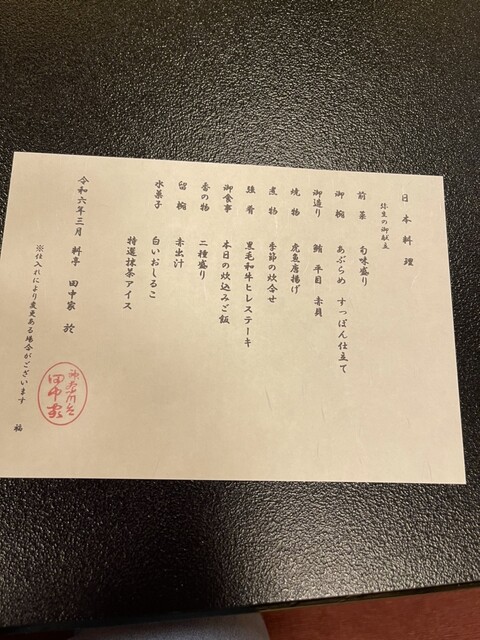 日本料理
弥生の御献立
前菜 旬味盛り
御椀 あぶらめ すっぽん仕立て
御造り 鮪 平目 赤貝
焼物 虎魚唐揚げ
煮物 季節の炊合せ
強肴 黒毛和牛ヒレステーキ
御食事 本日の炊込みご飯
香の物 二種盛り
留椀 赤出汁
水菓子 白いおしるこ
特選抹茶アイス
令和六年三月 料亭 田中家 於
※仕入れにより変更ある場合がございます
福
神奈川台
田中家